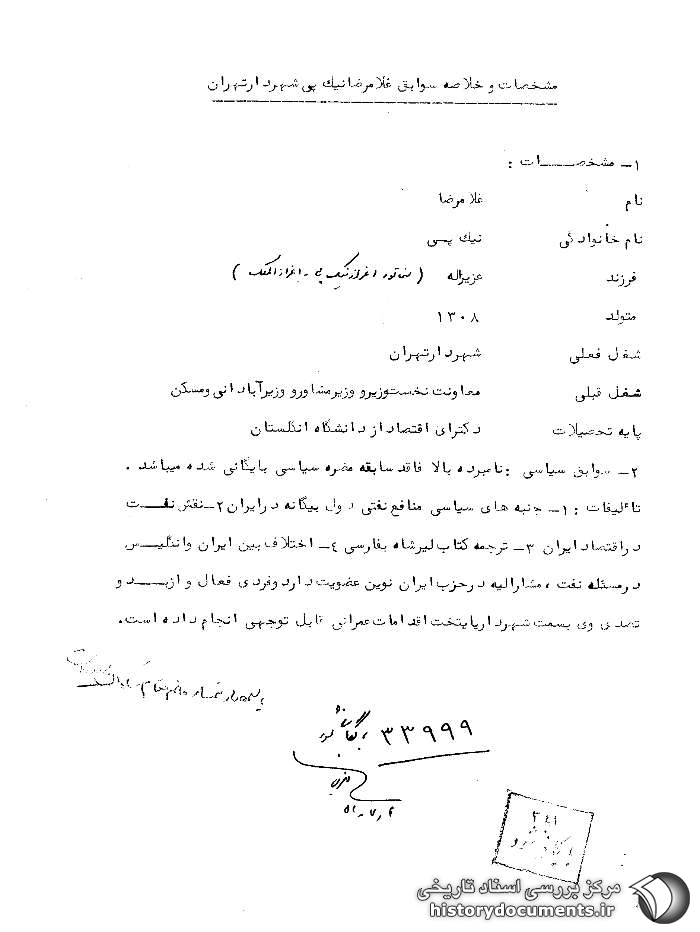 مشخصات و خلاصه سوابق غلامرضا نیك پی شهردار تهران
۱ـ مشخصـــات :
نام غلامرضا
نام خانوادگی نیك پسی
فرزند عزیزاله ( سناتور اعزاز نیک پی ـ اعزازالملک )
متولد ۱۳۰۸
شغل فعلی شهردار تهران
شغل قبلی معاونت نخست‌وزیر و وزیر مشاور و وزیر آبادانی و مسکن
پایه تحصیلات دکترای اقتصاد از دانشگاه انگلستان
۲ـ سوابق سیاسی : نامبرده بالا فاقد سابقه مضره سیاسی بایگانی شده میباشد .
تاٴلیفات : ۱ـ جنبه های سیاسی منافع نفتی دول بیگانه در ایران ۲ـ نقش نفــت
در اقتصاد ایران ۳ـ ترجمه کتاب لیرشاه بفارسی ٤ـ اختلاف بین ایران و انگلیــس
در مسئله نفت ، مشارالیه در حزب ایران نوین عضویت دارد و فردی فعال و از بــد و
تصدی وی بسمت شهردار پایتخت اقدامات عمرانی قابل توجهی انجام داده است .
۳۳۹۹۹ بایگانی شود
۳٤۱
بایگانی شود
مرکز بررسی اسناد تاریخی
historydocuments.ir